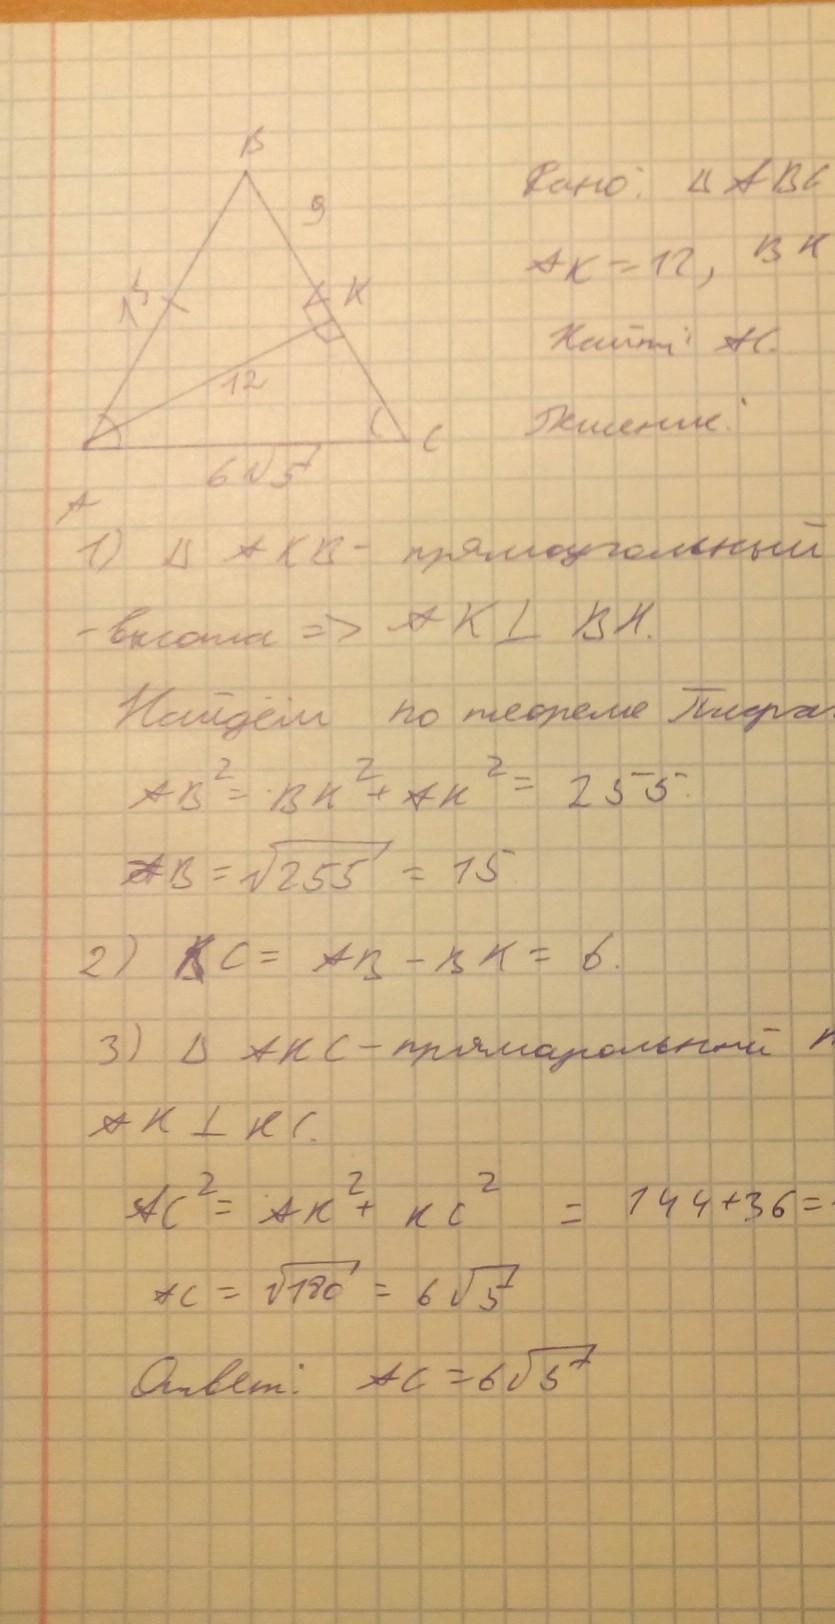 B
9
15
K
12
C
6√5
A
Дано: Δ ABC
AK = 12, BK
Найти: AC.
Решение:
1) Δ AKB - прямоугольный
- высота => AK ⊥ BK.
Найдём по теореме Пифаг
AB² = BK² + AK² = 255.
AB = √255 = 15
2) KC = AB - BK = 6.
3) Δ AKC - прямоугольный
AK ⊥ KC.
AC² = AK² + KC² = 144+36=
AC = √180 = 6√5
Ответ: AC = 6√5